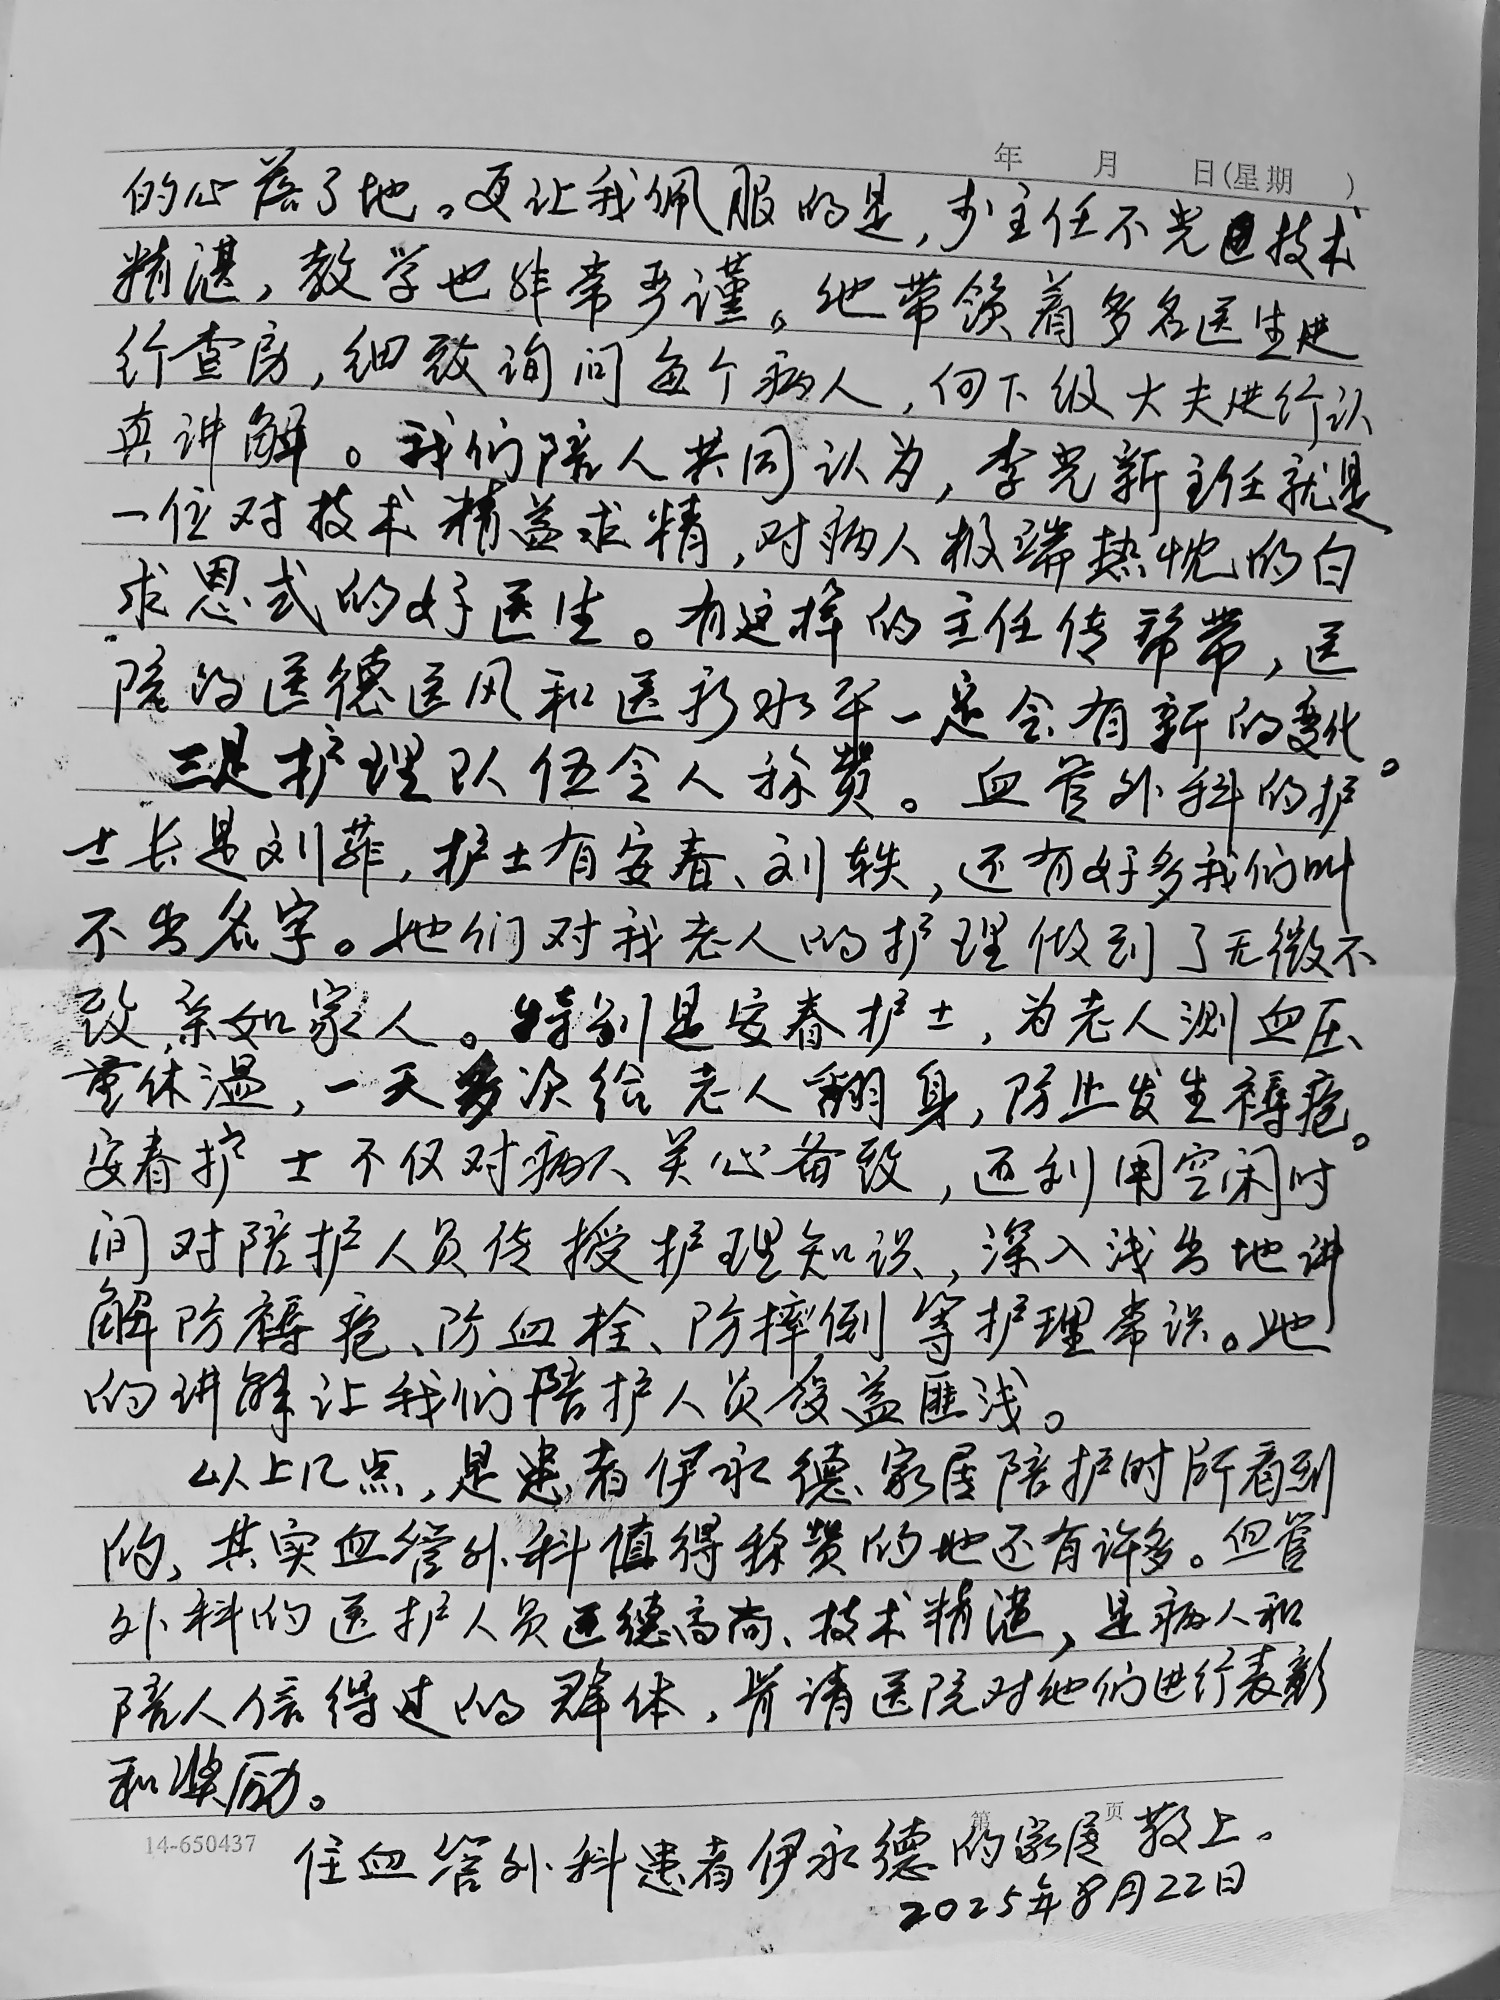 年 月 日(星期 )
的心落了地。更让我佩服的是,李主任不光技术
精湛,教学也非常严谨。他带领着多名医生进
行查房,细致询问每个病人,向下级大夫进行认
真讲解。我们陪人共同认为,李光新主任就是
一位对技术精益求精,对病人极端热忱的白
求恩式的好医生。有这样的主任传帮带,医
院的医德医风和医疗水平一定会有新的变化。
三是护理队伍令人称赞。血管外科的护
士长是刘菲,护士有安春、刘轶,还有好多我们叫
不出名字。她们对我老人的护理做到了无微不
致,亲如家人。特别是安春护士,为老人测血压、
量体温,一天多次给老人翻身,防止发生褥疮。
安春护士不仅对病人关心备致,还利用空闲时
间对陪护人员传授护理知识,深入浅出地讲
解防褥疮、防血栓、防摔倒等护理常识。她
的讲解让我们陪护人员受益匪浅。
以上几点,是患者伊永德家属陪护时所看到
的,其实血管外科值得称赞的地还有许多。但管
外科的医护人员医德高尚、技术精湛,是病人和
陪人信得过的群体,肯请医院对他们进行表彰
和奖励。
14-650437 第 页
住血管外科患者伊永德的家属敬上。
2025年8月22日